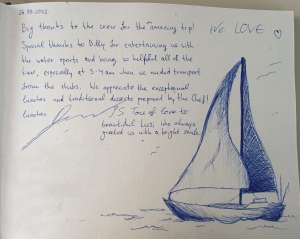 WE LOVE ♡
Big thanks to the crew for the amazing trip!
Special thanks to Billy for entertaining us with
the water sports and being so helpful all of the
time, especially at 3-4am when we needed transport
from the clubs. We appreciate the exceptional
lunches and traditional desserts prepared by the Chef!
Tons of love to
beautiful Luis, who always
greeted us with a bright smile.